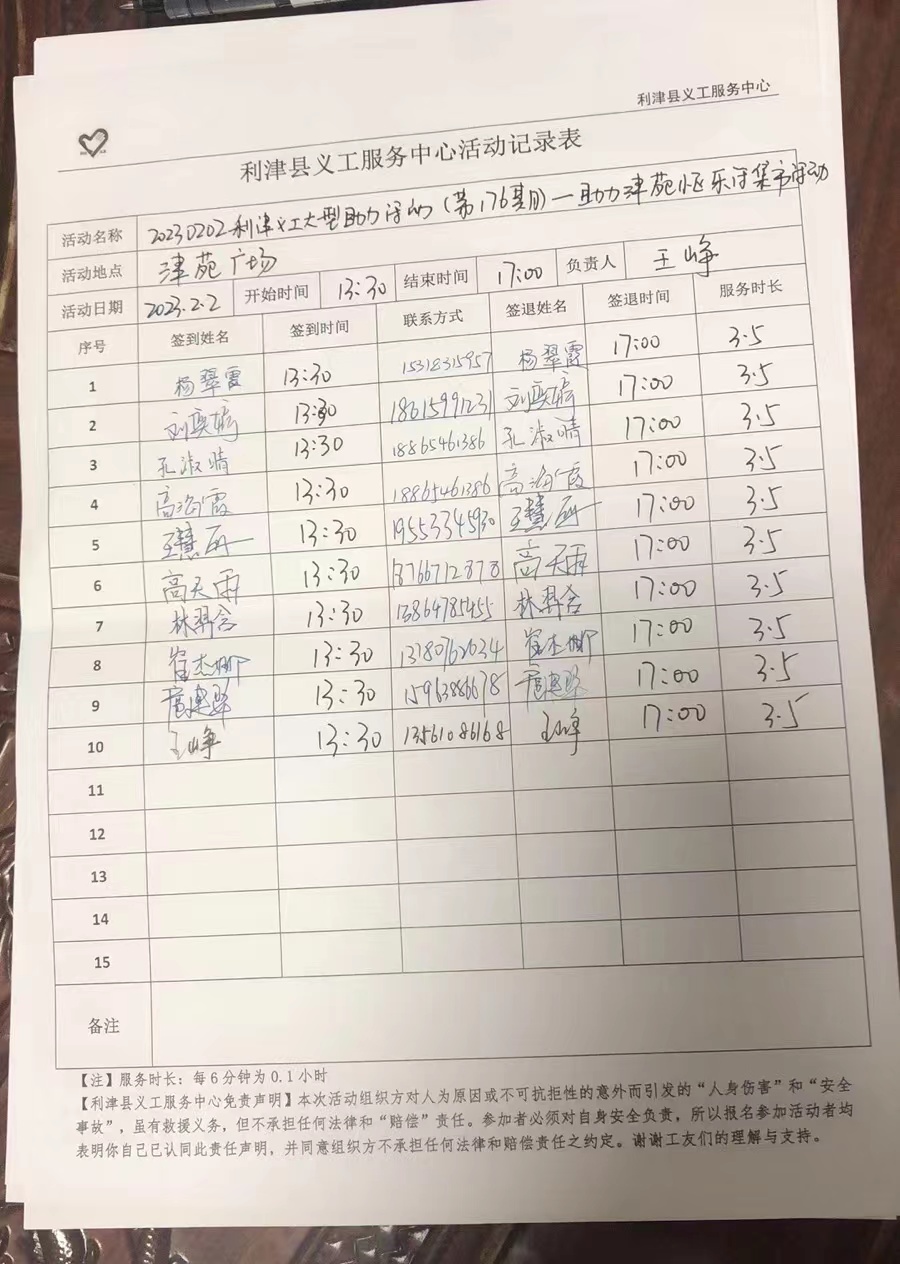 利津县义工服务中心
利津县义工服务中心活动记录表
活动名称 20230202利津义工大型助力活动(第176期)—助力津苑小区乐活集市活动
活动地点 津苑广场
活动日期 2023.2.2 开始时间 13:30 结束时间 17:00 负责人 王峥
序号 签到姓名 签到时间 联系方式 签退姓名 签退时间 服务时长
1 杨翠霞 13:30 15318315957 杨翠霞 17:00 3.5
2 刘 13:30 18615991231 刘 17:00 3.5
3 孔淑晴 13:30 18865461386 孔淑晴 17:00 3.5
4 高海霞 13:30 18865461386 高海霞 17:00 3.5
5 王慧 13:30 19553345930 王慧 17:00 3.5
6 高天雨 13:30 18766712878 高天雨 17:00 3.5
7 林羿含 13:30 13864785455 林羿含 17:00 3.5
8 崔杰娜 13:30 13780762634 崔杰娜 17:00 3.5
9 13:30 15963886678 17:00 3.5
10 王峥 13:30 13561086168 王峥 17:00 3.5
11
12
13
14
15
备注
【注】服务时长：每6分钟为0.1小时
【利津县义工服务中心免责声明】本次活动组织方对人为原因或不可抗拒性的意外而引发的“人身伤害”和“安全
事故”，虽有救援义务，但不承担任何法律和“赔偿”责任。参加者必须对自身安全负责，所以报名参加活动者均
表明你自己已认同此责任声明，并同意组织方不承担任何法律和赔偿责任之约定。谢谢工友们的理解与支持。